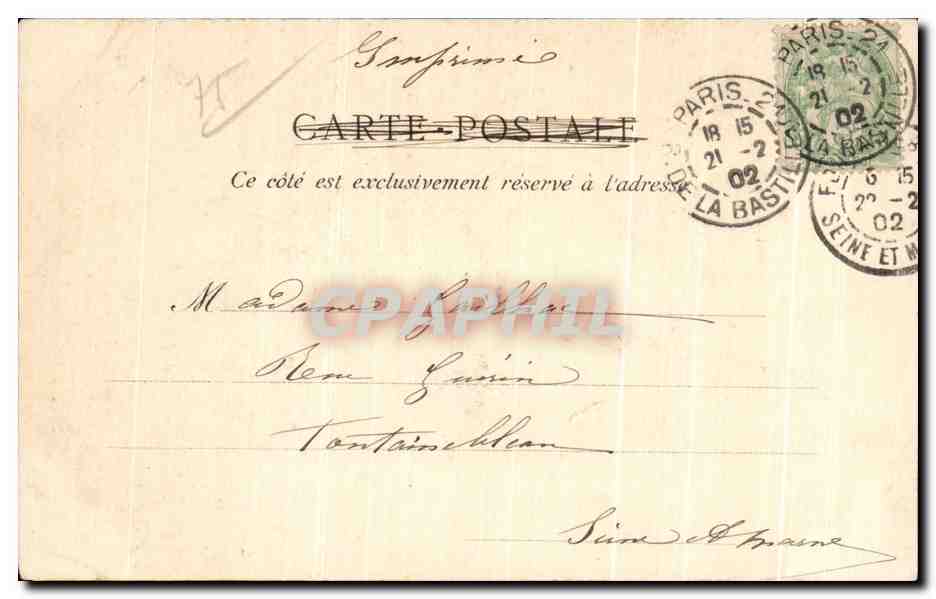 Imprimé
75
CARTE-POSTALE
Ce côté est exclusivement réservé à l'adresse
PARIS. 21
18 15
21 -2
02
DE LA BASTILLE
PARIS. 21
18 15
21 -2
02
LA BASTILLE
6 15
22 -2
02
SEINE ET M
CPAPHIL
Madame
Rue Guérin
Fontainebleau
Seine & Marne